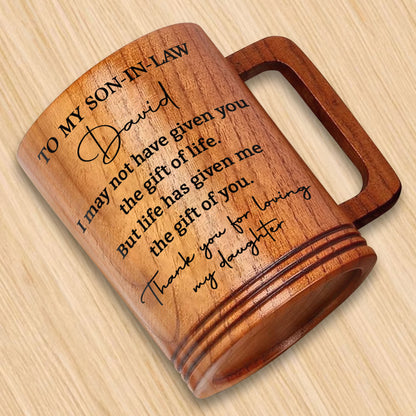 TO MY SON-IN-LAW
David
I may not have given you
the gift of life.
But life has given me
the gift of you.
Thank you for loving
my daughter